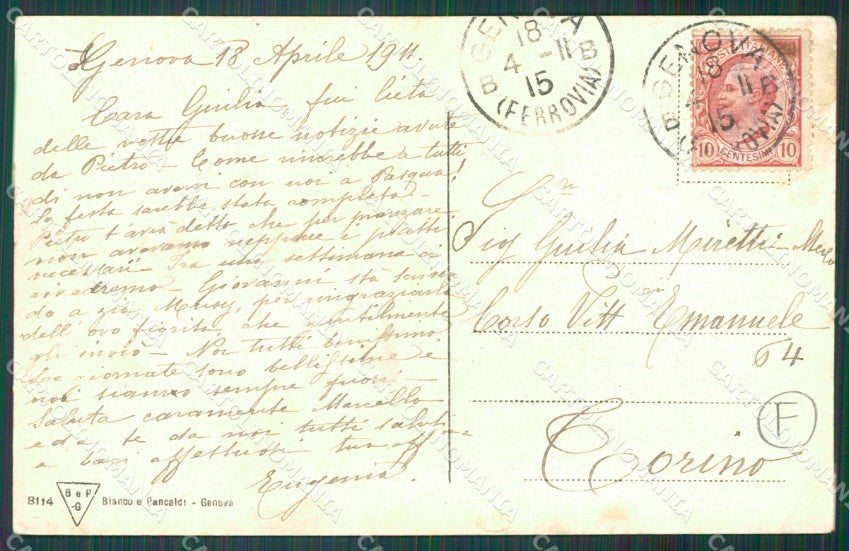 Genova 18 Aprile 1911.
Cara Giulia fui lieta
delle vostre buone notizie avute
da Pietro - Come rincrebbe a tutti
di non avervi con noi a Pasqua!
La festa sarebbe stata completa -
Pietro t'avrà detto che per pranzare
non avevamo neppure i piatti
necessarii - Fra una settimana ci
rivedremo - Giovanni sta scriven
do a per ringraziarla
dell'ovo fiorito, che gentilmente
gli inviò - Noi tutti benissimo
Le giornate sono bellissime e
noi siamo sempre fuori -
Saluta caramente Marcello
ed a te da noi tutti saluti
e baci affettuosi tua aff
Eugenia
8114
B e P
-G
Bianco e Pancaldi - Genova
GENOVA
18
4 - 11
15
B B
(FERROVIA)
GENOVA
18
11
15
B B
10 CENTESIMI 10
Sig Giulia Miretti
Corso Vitt Emanuele
64
Torino
F
CARTOLINOMANIA